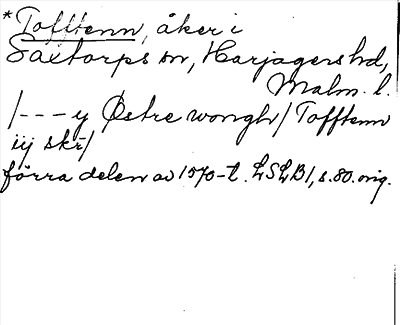 *Tofftenn, åker i
Saxtorps sn, Harjagers hd,
Malm. l.
/--- y Østre wongh/ Tofftenn
iij skr/
förra delen av 1570-t. LSLB1, s. 80. orig.